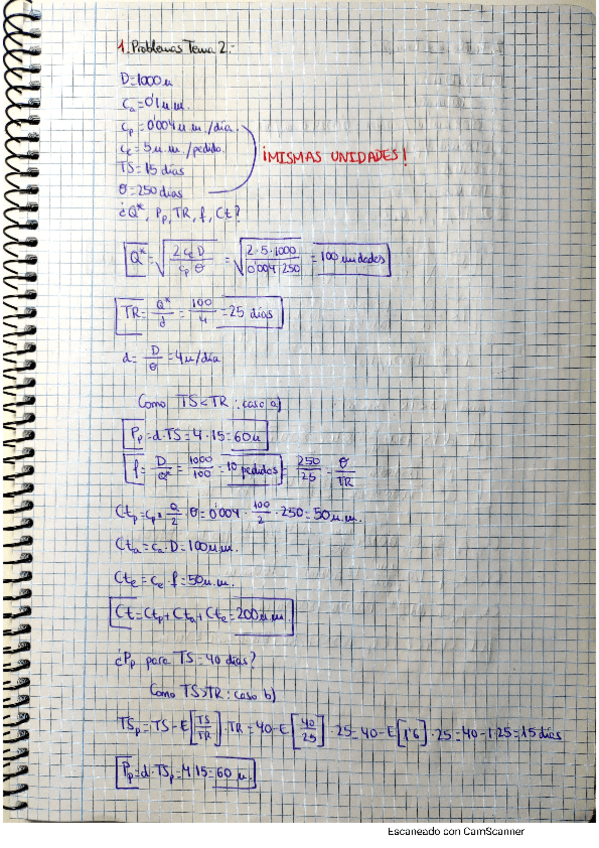 1. Problemas Tema 2:
D=1000u
ca=0'1u.m.
cp=0'004u.m./día.
ce=5u.m./pedido.
¡MISMAS UNIDADES!
TS=15 días
θ=250 días
¿Q*, Pp, TR, f, Ct?
Q*=√(2ceD/cpθ) = √(2·5·1000/0'004·250) = 100 unidades
TR= Q*/d = 100/4 = 25 días
d= D/θ = 4u/día
Como TS<TR: caso a)
Pp=d·TS=4·15=60u
f= D/Q* = 1000/100 = 10 pedidos = 250/25 = θ/TR
Ctp=cp·Q/2·θ=0'004·100/2·250=50u.m.
Cta=ca·D=100u.m.
Cte=ce·f=50u.m.
Ct=Ctp+Cta+Cte=200u.m.
¿Pp para TS=40 días?
Como TS>TR: caso b)
TSp=TS-E[TS/TR]·TR=40-E[40/25]·25=40-E[1'6]·25=40-1·25=15 días
Pp=d·TSp=4·15=60 u.
Escaneado con CamScanner